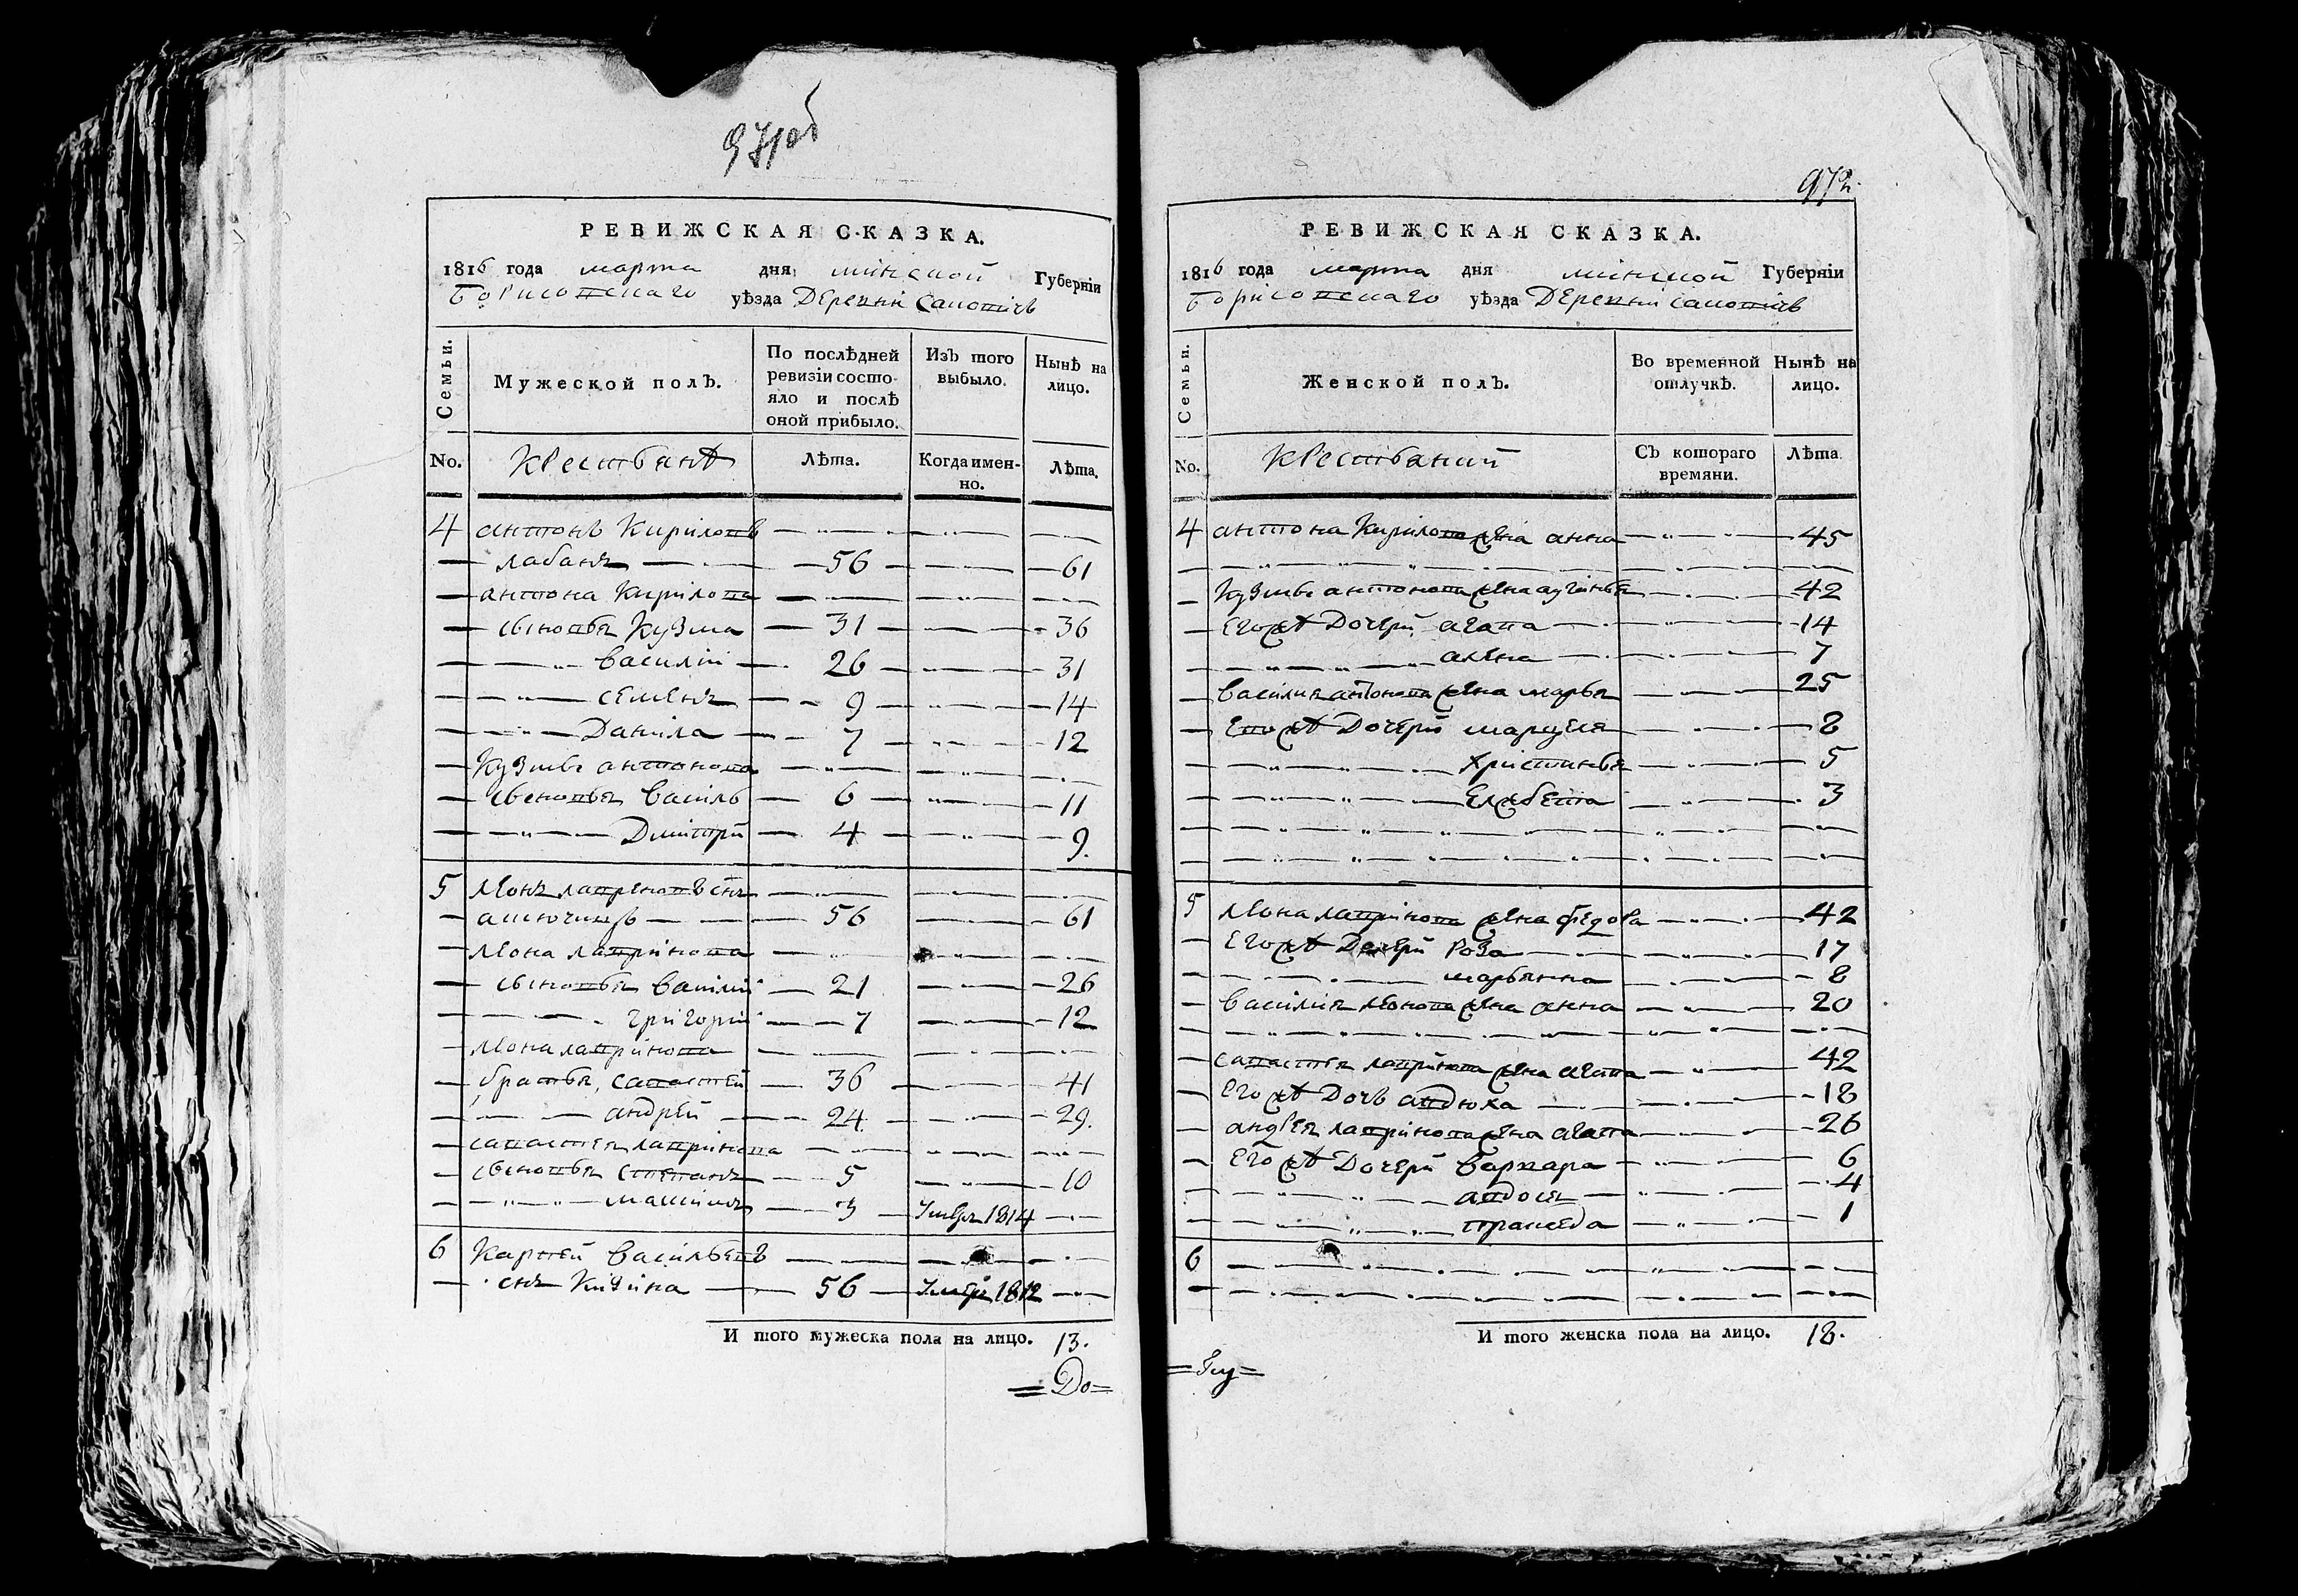 971об
РЕВИЖСКАЯ СКАЗКА.
1816 года марта дня минской Губерніи
Борисовскаго уѣзда Деревни
Семьи.
Мужеской полъ.
По послѣдней ревизіи состояло и послѣ оной прибыло.
Изъ того выбыло.
Нынѣ на лицо.
No. Крестьянѣ Лѣта. Когда имен-но. Лѣта.
4 антонъ Кириловъ
лабанъ 56 61
антона Кирилова
сыновья Кузма 31 36
василій 26 31
семенъ 9 14
Даніла 7 12
Кузмы антонова
сыновья василь 6 11
Дмитрій 4 9.
5 леонъ лавреновъ снъ
56 61
леона лаврінова
сыновья василій 21 26
григорій 7 12
леона лаврінова
братья, савастей 36 41
андрей 24 29.
савастея лаврінова
сыновья степанъ 5 10
максимъ 3 Умеръ 1814
6 Карпей васільевъ
снъ 56 Умеръ 1812
И того мужеска пола на лицо. 13.
=До=
972
РЕВИЖСКАЯ СКАЗКА.
1816 года марта дня минской Губерніи
Борисовскаго уѣзда Деревни
Семьи.
Женской полъ.
Во временной отлучкѣ.
Нынѣ на лицо.
No. Крестьяний Съ котораго времяни. Лѣта.
4 антона Кирилова жена анна 45
Кузмы антонова жена 42
Егожѣ Дочери агапа 14
алена 7
василия антонова жена марья 25
Евожѣ Дочери марцеля 8
христинья 5
Елжбета 3
5 леона лаврінова жена федора 42
Егожѣ Дочери Роза 17
марьянна 8
василия леонова жена анна 20
савастея лаврінова жена агапа 42
Егожѣ Дочь авдюха 18
андрея лаврінова жена агапа 26
Егожѣ Дочери варвара 6
авдоля 4
пракседа 1
6
И того женска пола на лицо. 18.